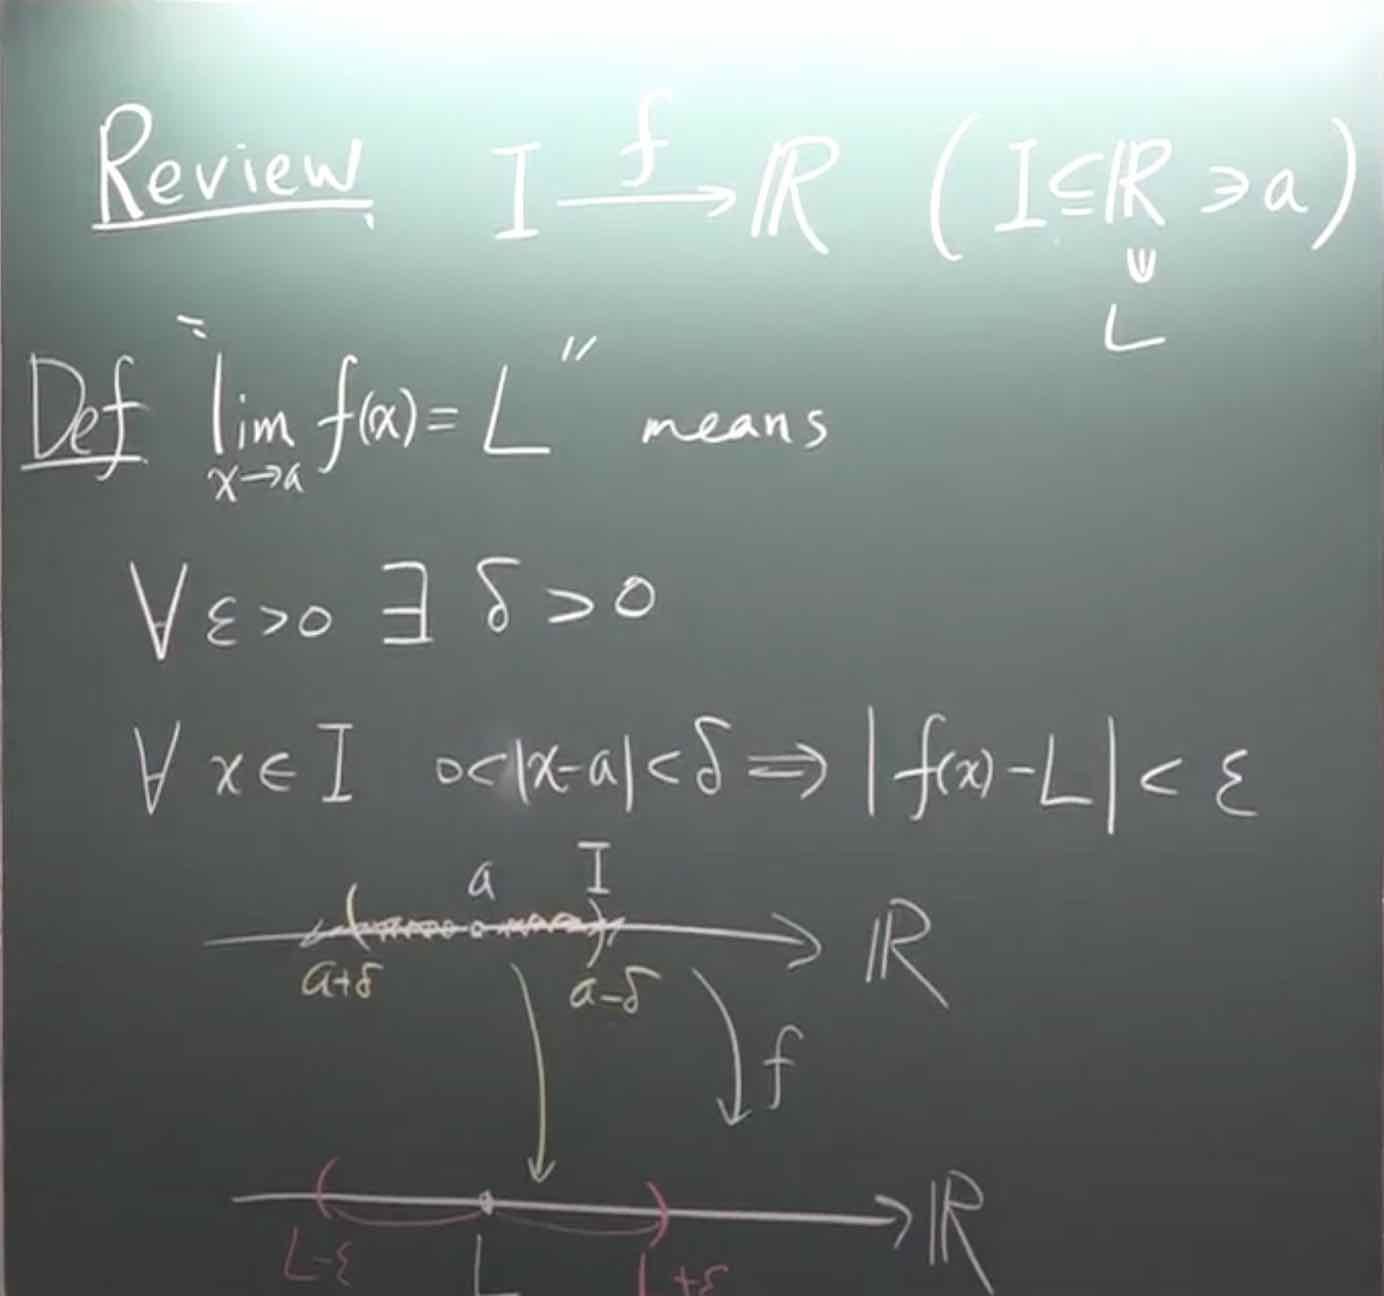 Review I f→ ℝ ( I ⊆ ℝ ∋ a )
L
Def "lim x→a f(x) = L" means
∀ ε > 0 ∃ δ > 0
∀ x ∈ I 0<|x-a|<δ ⇒ |f(x)-L| < ε
a I
ℝ
a+δ a-δ
f
ℝ
L-ε L L+ε